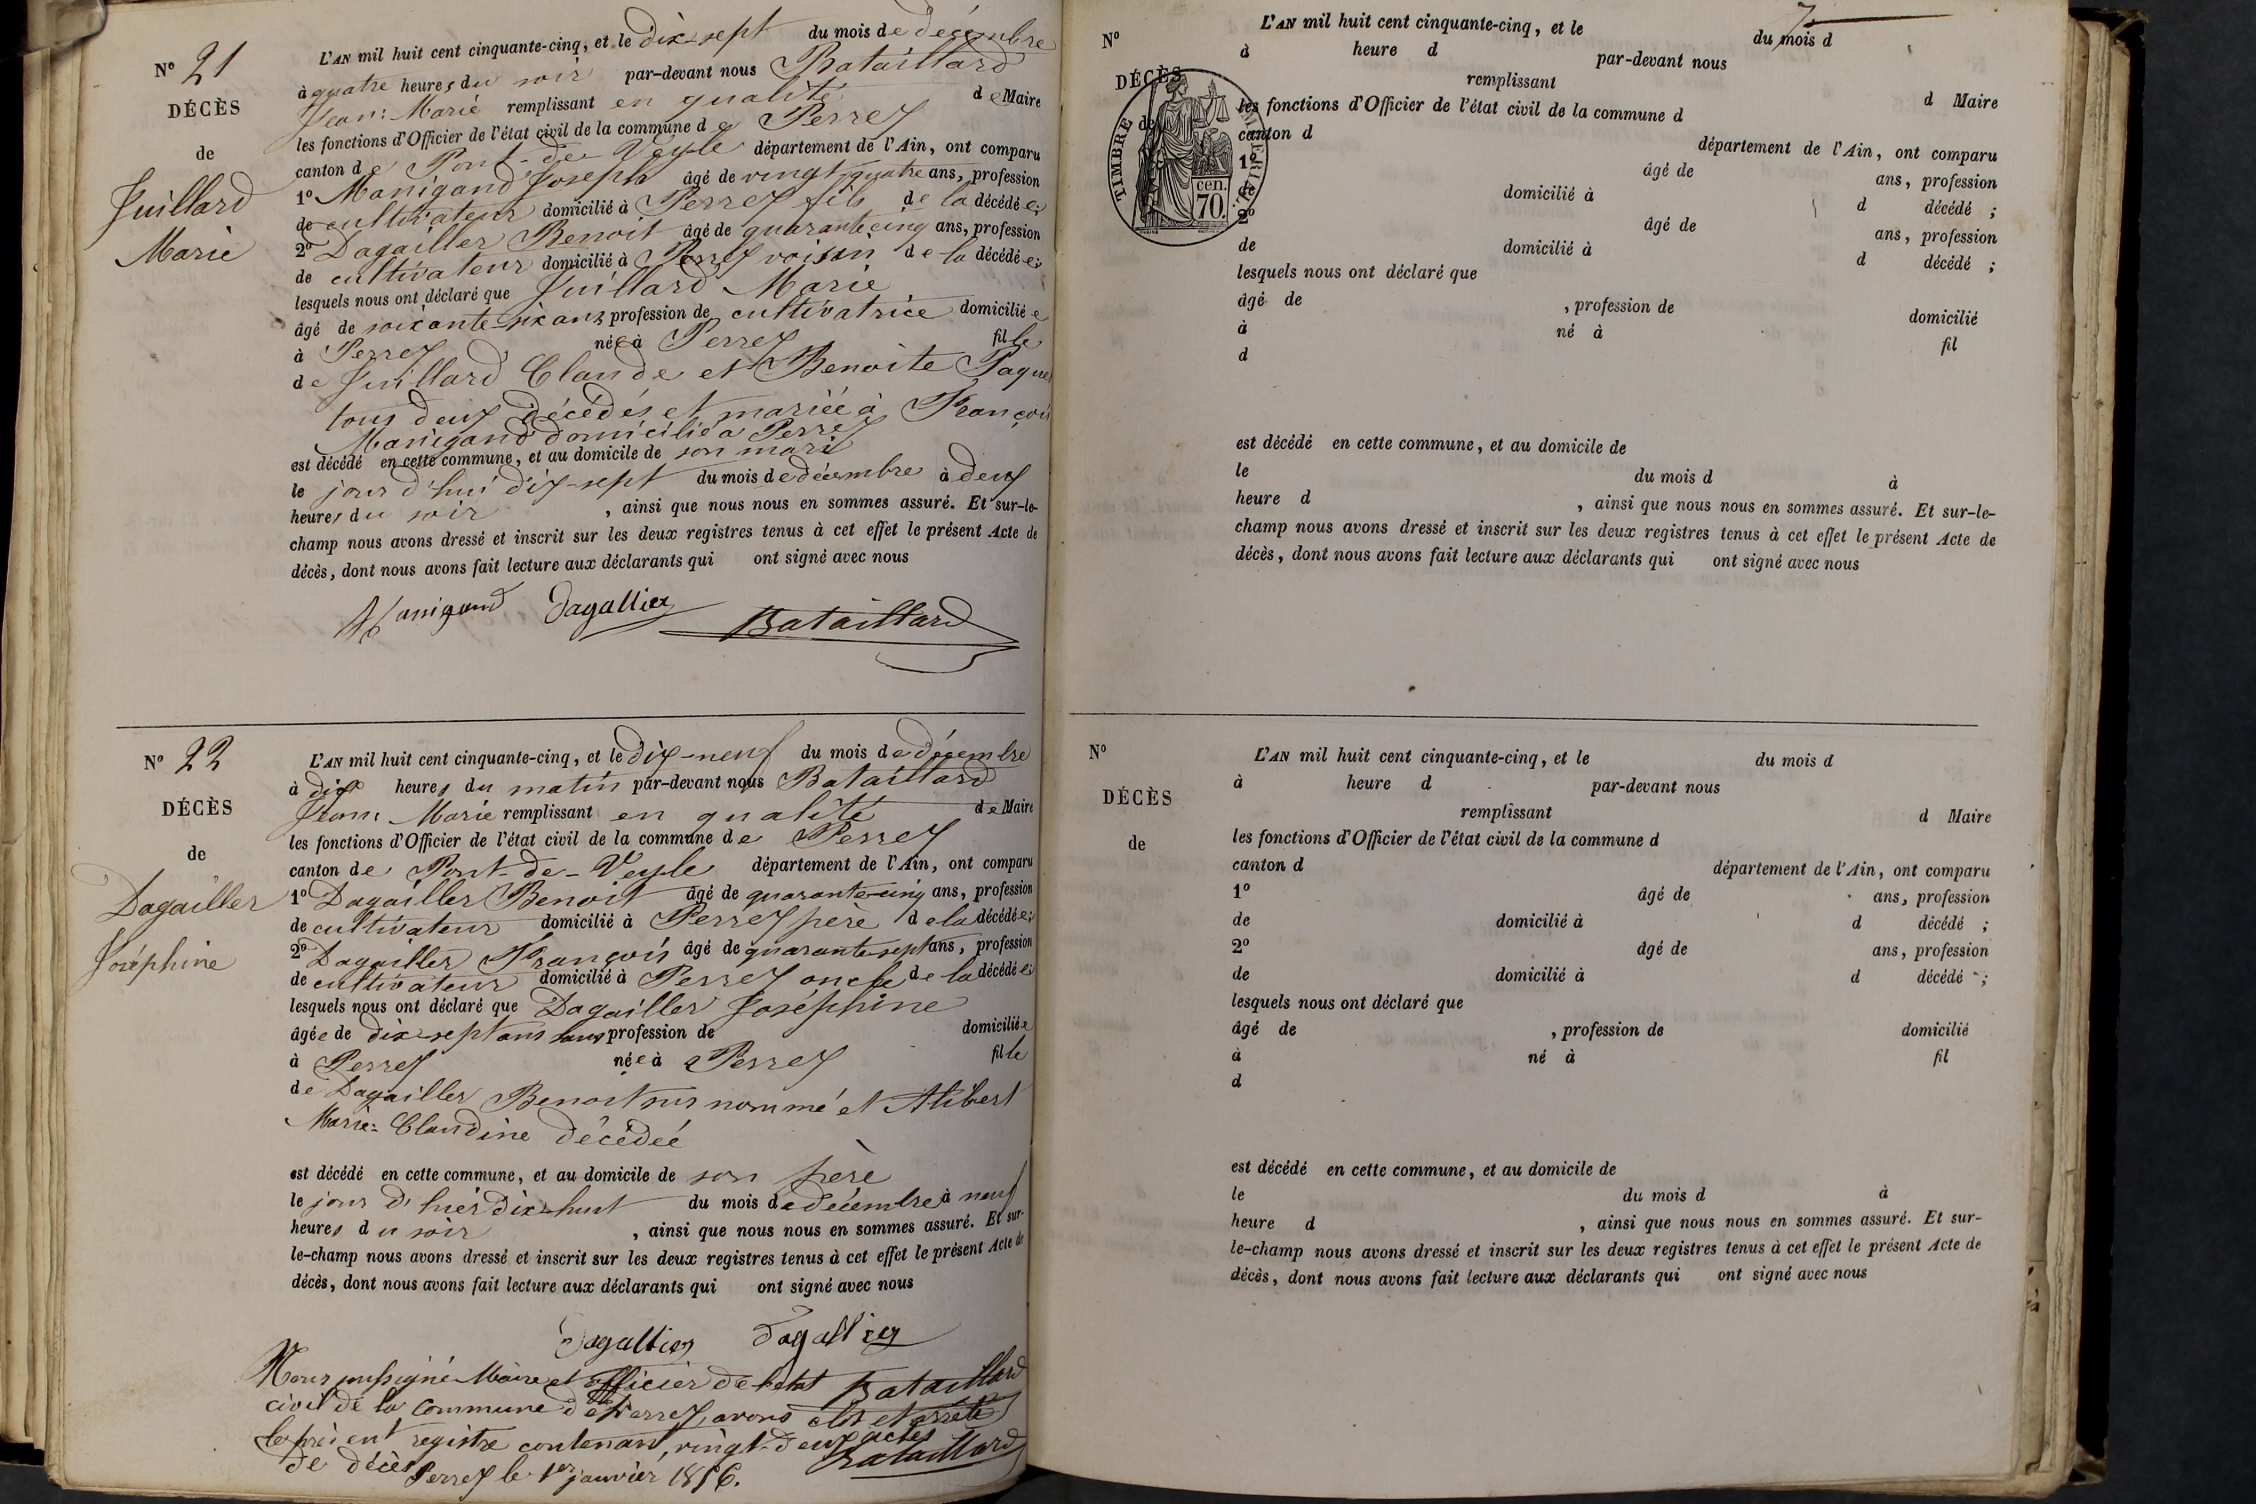 N° 21
DÉCÈS
de
Juillard
Marie
L'AN mil huit cent cinquante-cinq, et le dix-sept du mois de décembre
à quatre heures du soir par-devant nous Bataillard
Jean-Marie remplissant en qualité de Maire
les fonctions d'Officier de l'état civil de la commune de Perrex
canton de Pont-de-Veyle département de l'Ain, ont comparu
1° Manigand Joseph âgé de vingt quatre ans, profession
de cultivateur domicilié à Perrex fils de la décédée;
2° Dagailler Benoit âgé de quarante cinq ans, profession
de cultivateur domicilié à Perrex voisin de la décédée;
lesquels nous ont déclaré que Juillard Marie
âgé de soixante-six ans, profession de cultivatrice domiciliée
à Perrex née à Perrex fille
de Juillard Claude et Benoite Paque
tous deux décédés et mariée à François
Manigand domicilié à Perrex
est décédé en cette commune, et au domicile de son mari
le jour d'hui dix-sept du mois de décembre à deux
heures du soir , ainsi que nous nous en sommes assuré. Et sur-le-
champ nous avons dressé et inscrit sur les deux registres tenus à cet effet le présent Acte de
décès, dont nous avons fait lecture aux déclarants qui ont signé avec nous
Manigand Dagallier Bataillard
N° 22
DÉCÈS
de
Dagailler
Joséphine
L'AN mil huit cent cinquante-cinq, et le dix-neuf du mois de décembre
à dix heures du matin par-devant nous Bataillard
Jean-Marie remplissant en qualité de Maire
les fonctions d'Officier de l'état civil de la commune de Perrex
canton de Pont-de-Veyle département de l'Ain, ont comparu
1° Dagailler Benoit âgé de quarante-cinq ans, profession
de cultivateur domicilié à Perrex père de la décédée;
2° Dagailler François âgé de quarante sept ans, profession
de cultivateur domicilié à Perrex oncle de la décédée;
lesquels nous ont déclaré que Dagailler Joséphine
âgée de dix-sept ans sans profession de domiciliée
à Perrex née à Perrex fille
de Dagailler Benoit sus nommé et Alibert
Marie-Claudine décédée
est décédé en cette commune, et au domicile de son père
le jour d'hier dix-huit du mois de décembre à neuf
heures du soir , ainsi que nous nous en sommes assuré. Et sur-
le-champ nous avons dressé et inscrit sur les deux registres tenus à cet effet le présent Acte de
décès, dont nous avons fait lecture aux déclarants qui ont signé avec nous
Dagallier Dagallier
Bataillard
Nous soussigné Maire et officier de l'état
civil de la commune de Perrex, avons clos et arrêté
le présent registre contenant vingt-deux actes
de décès Bataillard
Perrex le 1er janvier 1856.
N°
DÉCÈS
de
TIMBRE IMPERIAL
70 cen.
L'AN mil huit cent cinquante-cinq, et le du mois d
à heure d par-devant nous
remplissant d Maire
les fonctions d'Officier de l'état civil de la commune d
canton d département de l'Ain, ont comparu
1° âgé de ans, profession
de domicilié à d décédé ;
2° âgé de ans, profession
de domicilié à d décédé ;
lesquels nous ont déclaré que
âgé de , profession de domicilié
à né à fil
d
est décédé en cette commune, et au domicile de
le du mois d à
heure d , ainsi que nous nous en sommes assuré. Et sur-le-
champ nous avons dressé et inscrit sur les deux registres tenus à cet effet le présent Acte de
décès, dont nous avons fait lecture aux déclarants qui ont signé avec nous
N°
DÉCÈS
de
L'AN mil huit cent cinquante-cinq, et le du mois d
à heure d par-devant nous
remplissant d Maire
les fonctions d'Officier de l'état civil de la commune d
canton d département de l'Ain, ont comparu
1° âgé de ans, profession
de domicilié à d décédé ;
2° âgé de ans, profession
de domicilié à d décédé ;
lesquels nous ont déclaré que
âgé de , profession de domicilié
à né à fil
d
est décédé en cette commune, et au domicile de
le du mois d à
heure d , ainsi que nous nous en sommes assuré. Et sur-
le-champ nous avons dressé et inscrit sur les deux registres tenus à cet effet le présent Acte de
décès, dont nous avons fait lecture aux déclarants qui ont signé avec nous